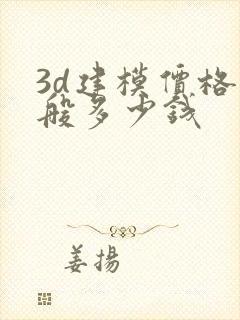 3d建模價格
般多少錢
姜揚